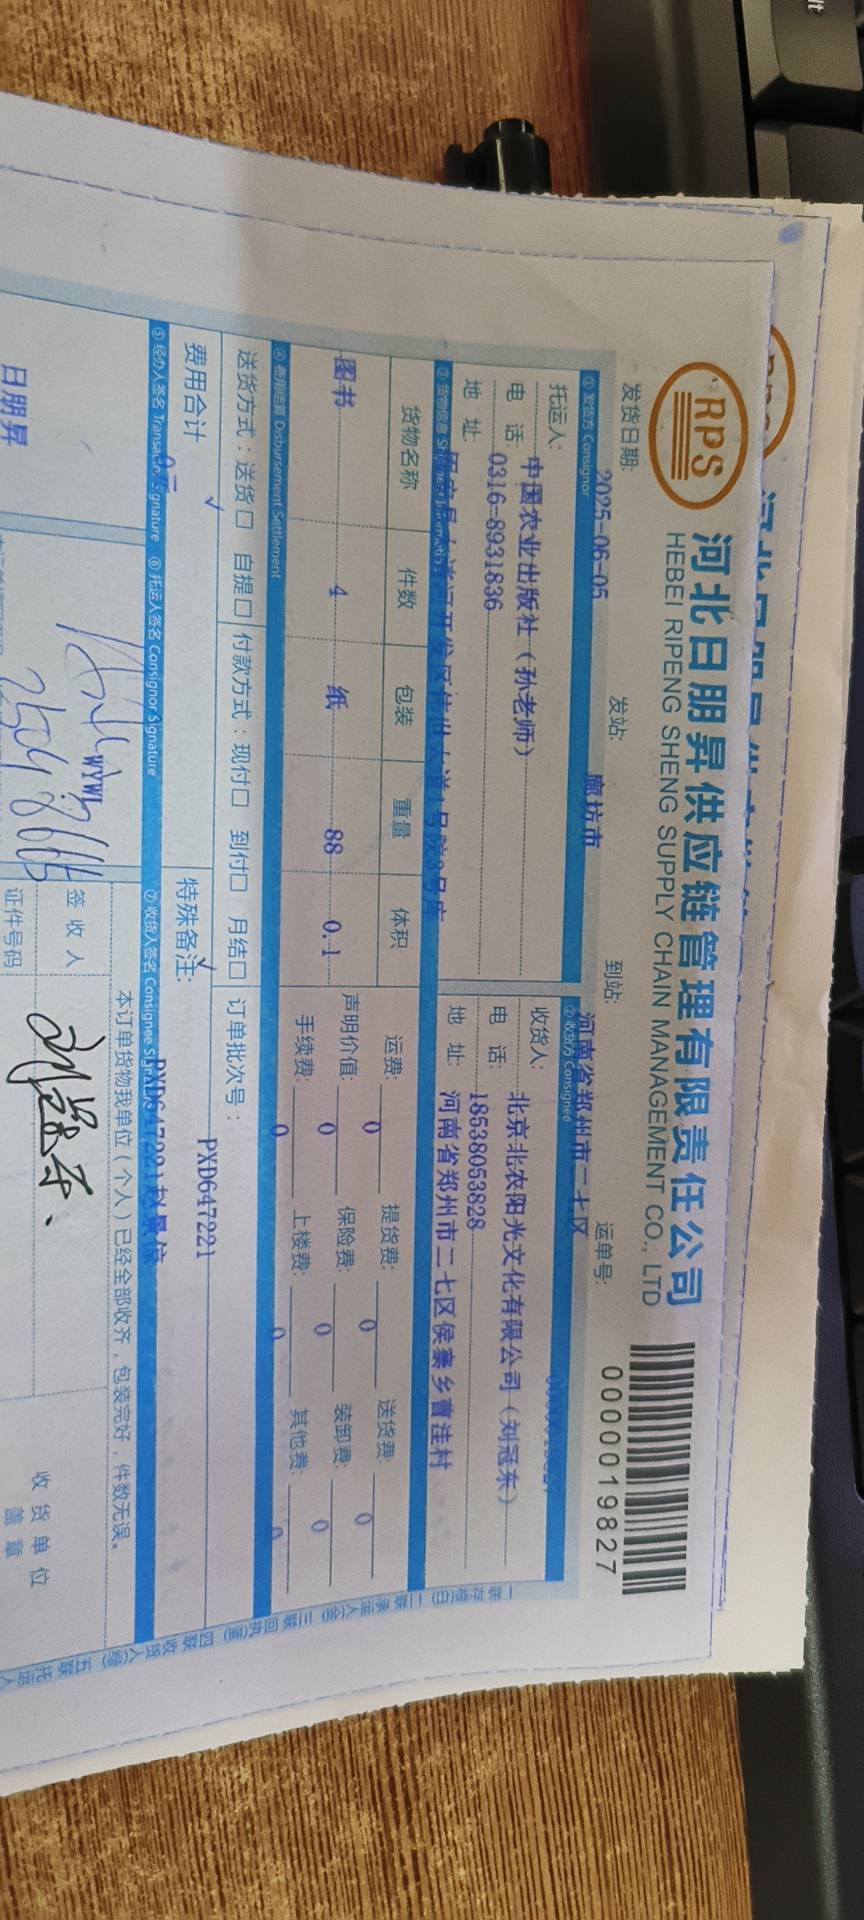 RPS
河北日朋昇供应链管理有限责任公司
HEBEI RIPENG SHENG SUPPLY CHAIN MANAGEMENT CO., LTD
0000019827
发货日期: 2025-06-05 发站: 廊坊市 到站: 河南省郑州市二七区 运单号:
① 发货方 Consignor
② 收货方 Consignee
托运人: 中国农业出版社（孙老师）
收货人: 北京北农阳光文化有限公司（刘冠东）
电 话: 0316-8931836
电 话: 18538053828
地 址:
地 址: 河南省郑州市二七区侯寨乡曹洼村
③ 货物信息
货物名称 件数 包装 重量 体积
图书 4 纸 88 0.1
运费: 0 提货费: 0 送货费: 0
声明价值: 0 保险费: 0 装卸费: 0
手续费: 0 上楼费: 0 其他费: 0
④ 费用结算 Disbursement Settlement
送货方式：送货□ 自提□ 付款方式：现付□ 到付□ 月结□ 订单批次号：
PXD647221
费用合计
特殊备注:
⑤ 经办人签名 ⑥ 托运人签名 Consignor Signature ⑦ 收货人签名 Consignee
本订单货物我单位（个人）已经全部收齐，包装完好，件数无误。
日朋昇
WYWL
签收人
证件号码
收货单位
盖章
一联存根(白) 二联承运人(金) 三联回执(蓝) 四联收货人(绿) 五联托运人